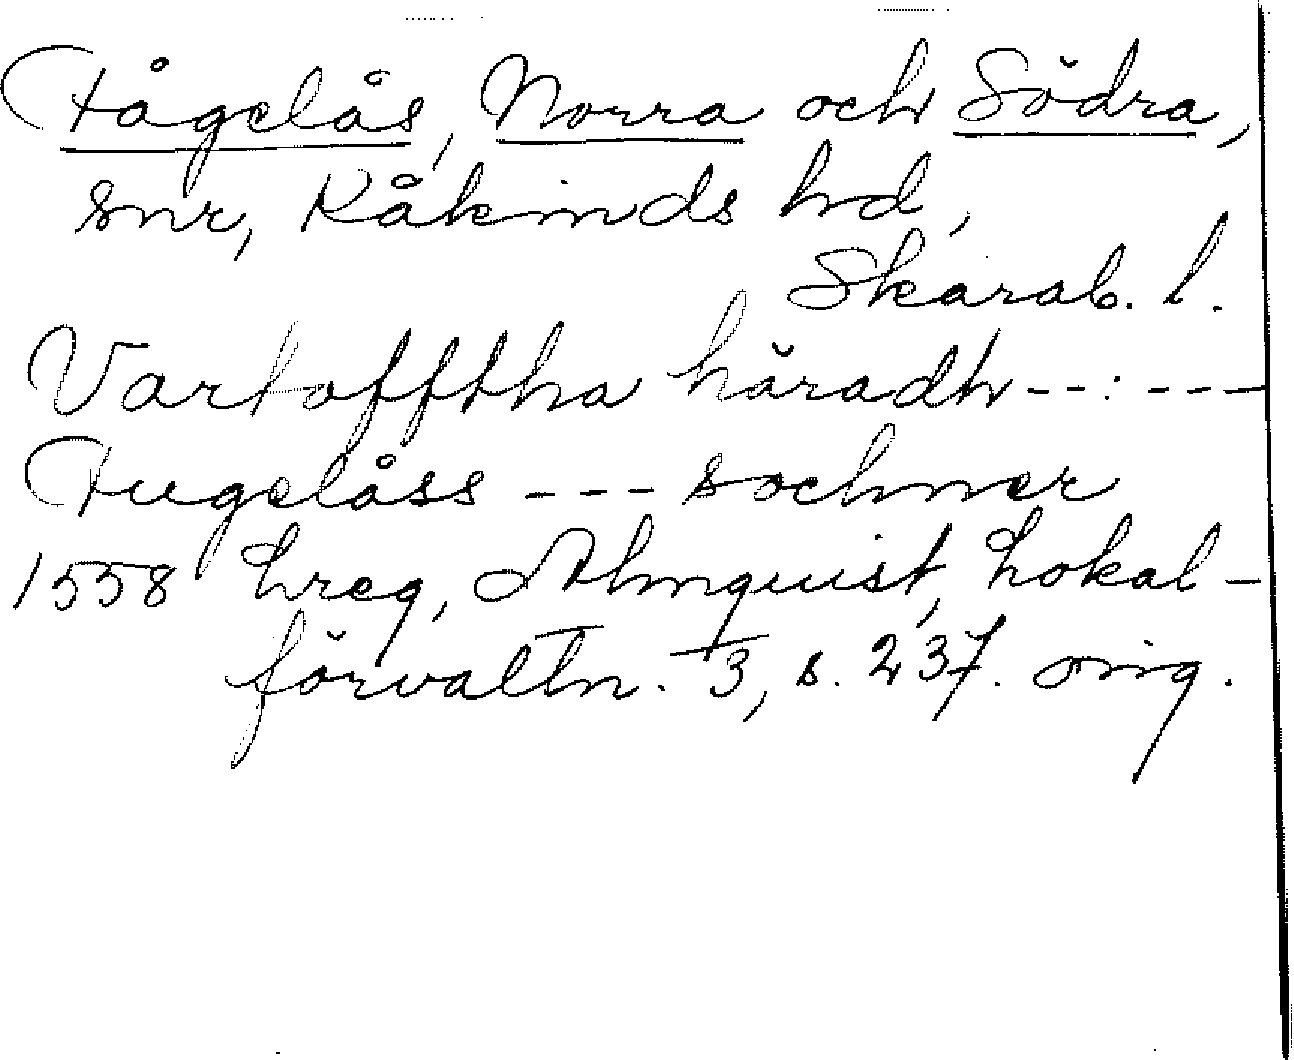 Fågelås, Norra och Södra,
snr, Kåkinds hd,
Skarab. l.
Vartofftha häradh --:---
Fugelåss --- sochner
1558 Lreg, Almquist, Lokal-
förvaltn. 3, s. 237. orig.